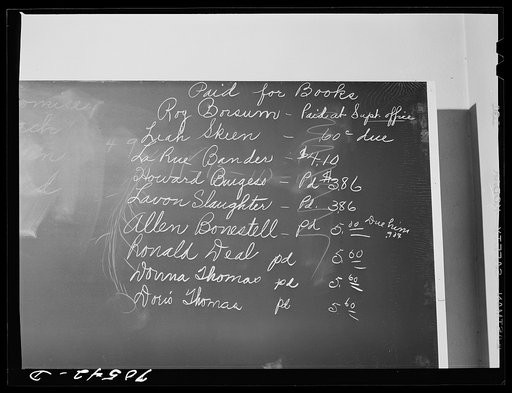 Paid for Books
Roy Borsum - Paid at Supt. office
Leah Skeen - 60¢ due
La Rue Bander - $4.10
Howard Burgess - Pd $3.86
Lavon Slaughter - Pd. 3.86
Allen Bonestell - Pd 5.00 Due him
Ronald Deal pd 5.60
Donna Thomas pd 5.60
Doris Thomas pd 5.60
70542-D